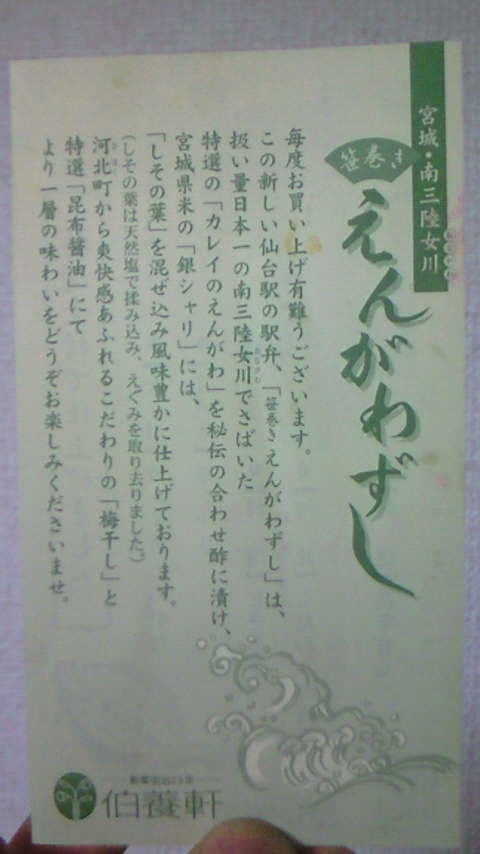 宮城・南三陸女川
笹巻き
えんがわずし
毎度お買い上げ有難うございます。
この新しい仙台駅の駅弁、「笹巻きえんがわずし」は、
扱い量日本一の南三陸女川でさばいた
特選の「カレイのえんがわ」を秘伝の合わせ酢に漬け、
宮城県米の「銀シャリ」には、
「しその葉」を混ぜ込み風味豊かに仕上げております。
(しその葉は天然塩で揉み込み、えぐみを取り去りました。)
河北町から爽快感あふれるこだわりの「梅干し」と
特選「昆布醤油」にて
より一層の味わいをどうぞお楽しみくださいませ。
伯養軒